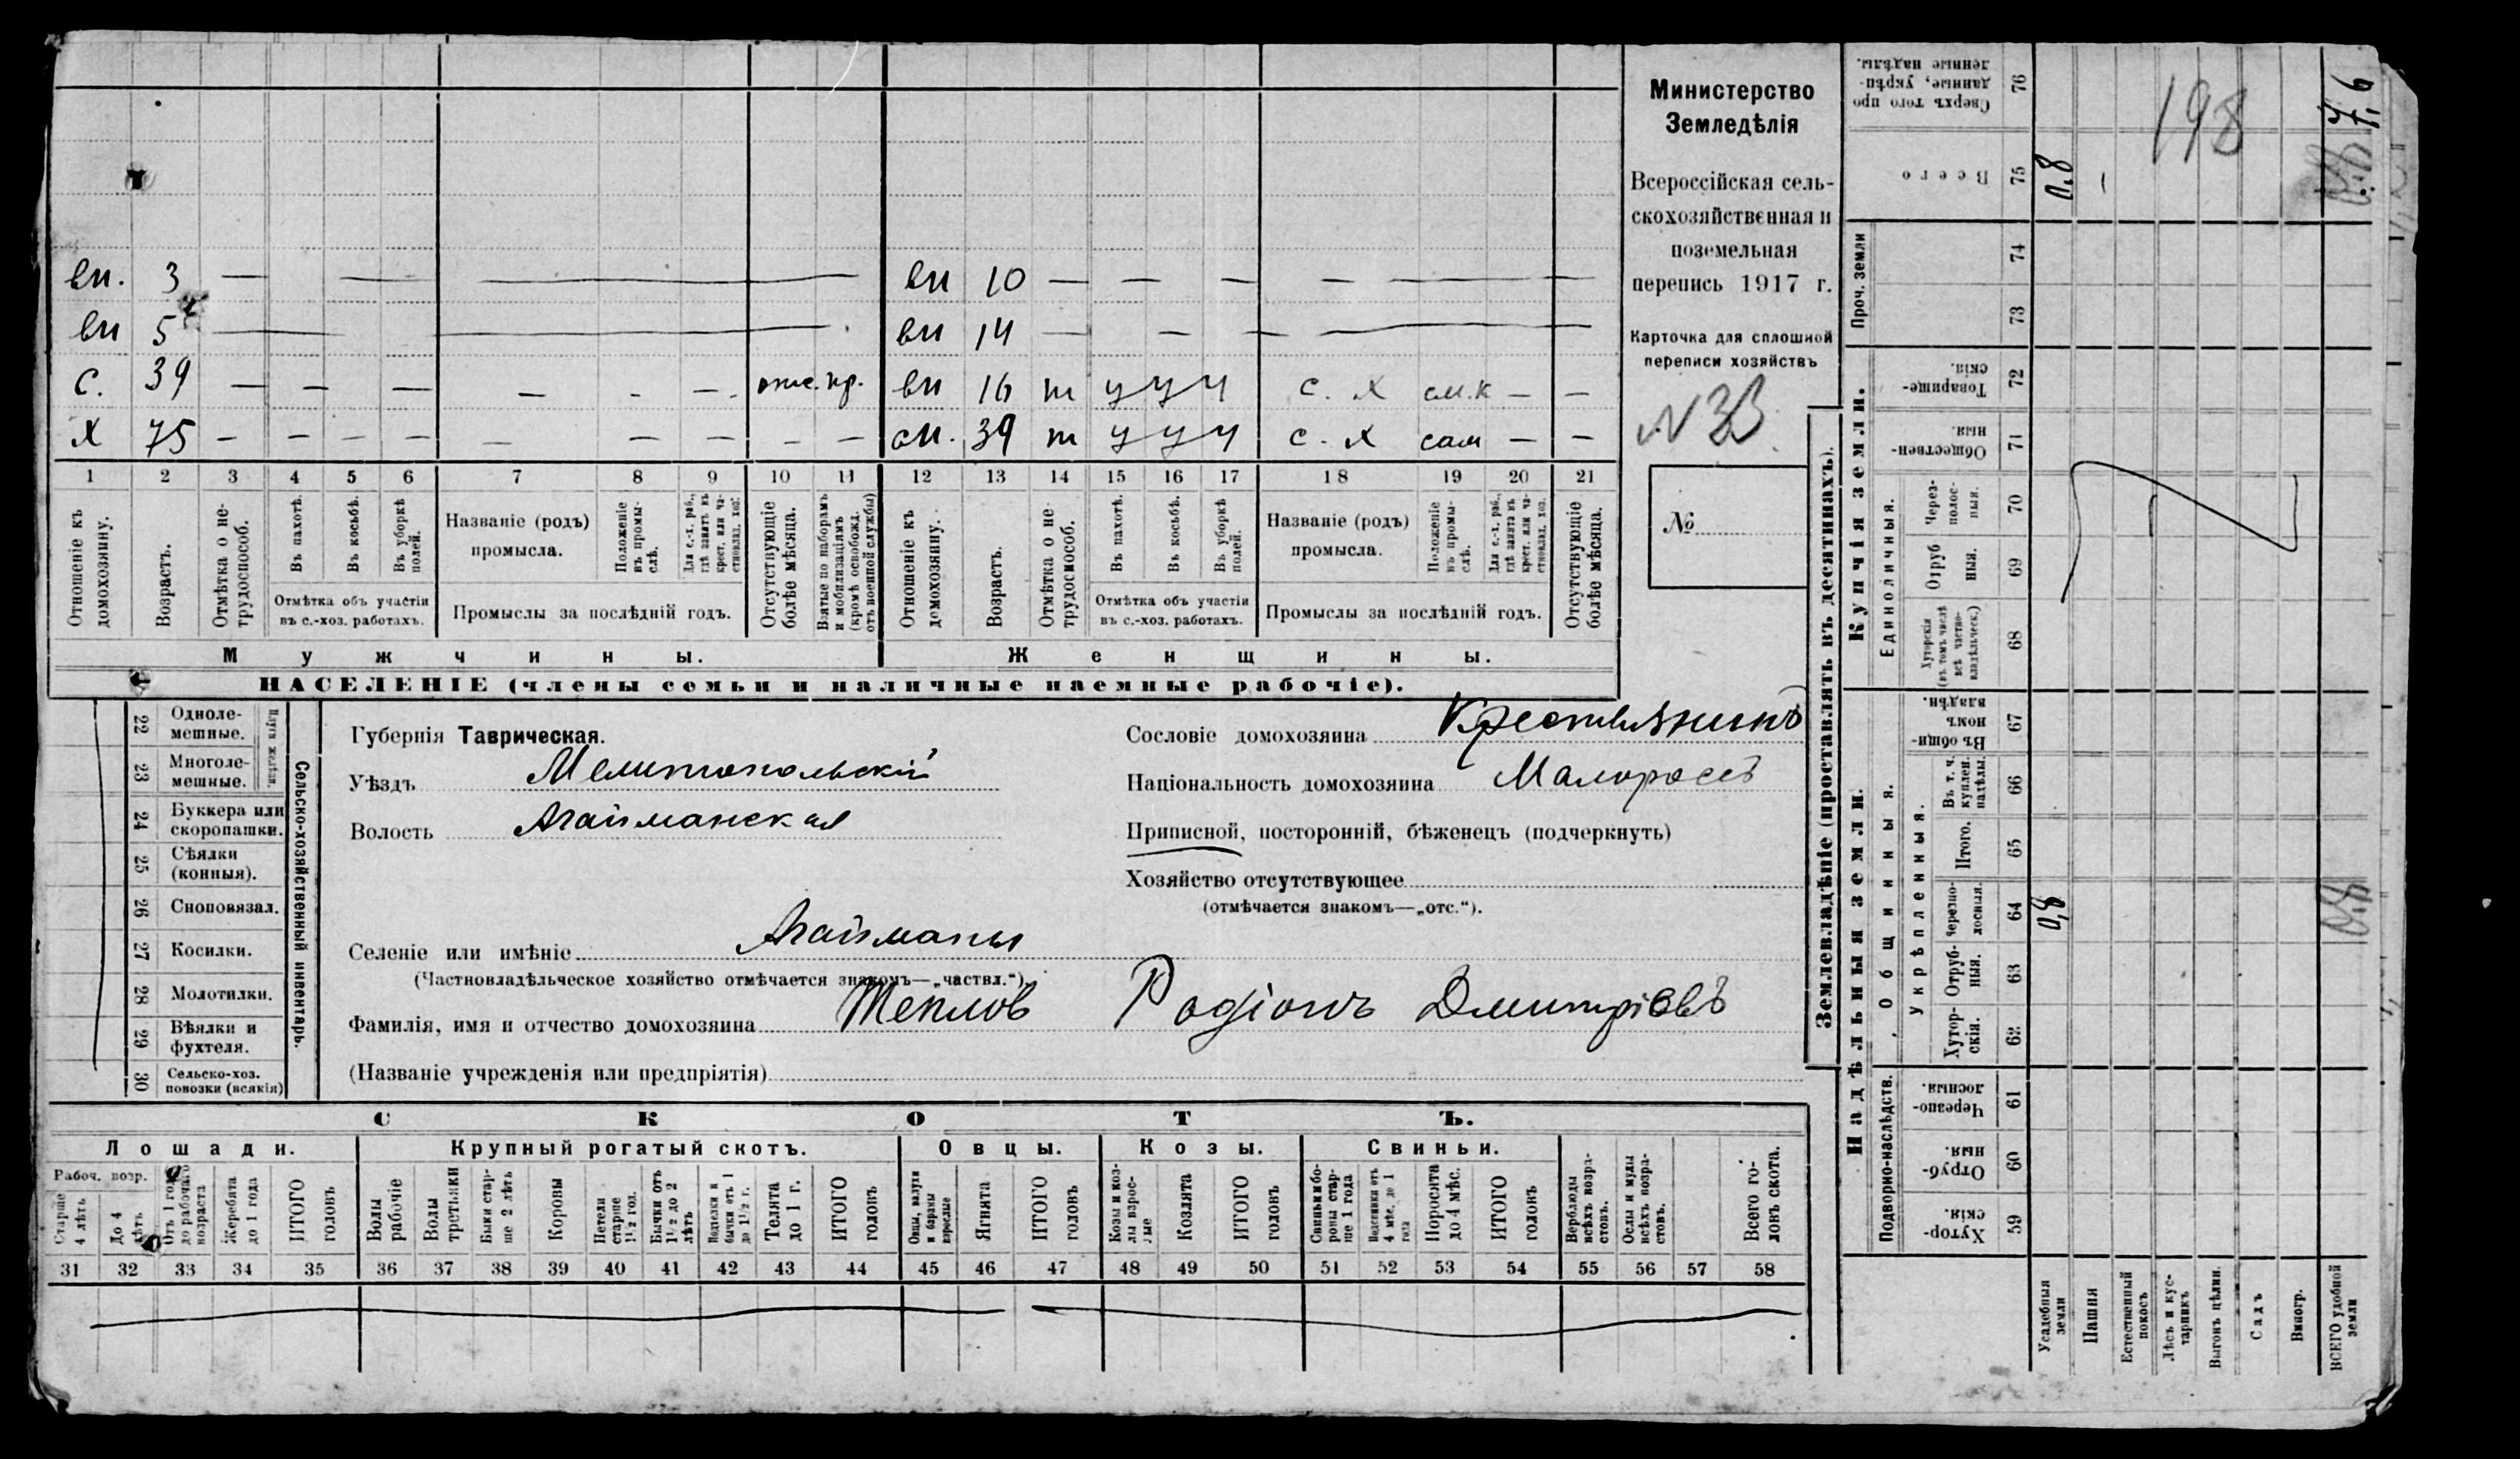 вн. 3 — — — вн 10 — — — — —
вн 5 — — — вн 14 — — — —
с. 39 — — — — - — вн 16 т у у у с. х — —
х 75 — — — — — — — — — — сн. 39 т у у у с. х сам — —
1 2 3 4 5 6 7 8 9 10 11 12 13 14 15 16 17 18 19 20 21
Отношеніе къ домохозяину.
Возрастъ.
Отмѣтка о нетрудоспособ.
Въ пахотѣ.
Въ косьбѣ.
Въ уборкѣ полей.
Отмѣтка объ участіи въ с.-хоз. работахъ.
Названіе (родъ) промысла.
Положеніе въ промыслѣ.
Для с.-х. раб., гдѣ занятъ въ крест. или частновлад. хоз.
Промыслы за послѣдній годъ.
Отсутствующіе болѣе мѣсяца.
Взятые по наборамъ и мобилизаціямъ (кромѣ освобожд. отъ военной службы)
Отношеніе къ домохозяину.
Возрастъ.
Отмѣтка о нетрудоспособ.
Въ пахотѣ.
Въ косьбѣ.
Въ уборкѣ полей.
Отмѣтка объ участіи въ с.-хоз. работахъ.
Названіе (родъ) промысла.
Положеніе въ промыслѣ.
Для с.-х. раб., гдѣ занята въ крест. или частновлад. хоз.
Промыслы за послѣдній годъ.
Отсутствующіе болѣе мѣсяца.
Мужчины.
Женщины.
НАСЕЛЕНІЕ (члены семьи и наличные наемные рабочіе).
Министерство
Земледѣлія
Всероссійская сель-
скохозяйственная и
поземельная
перепись 1917 г.
Карточка для сплошной
переписи хозяйствъ
N 33
№
22 Однолемешные.
23 Многолемешные.
24 Буккера или скоропашки.
25 Сѣялки (конныя).
26 Сноповязал.
27 Косилки.
28 Молотилки.
29 Вѣялки и фухтеля.
30 Сельско-хоз. повозки (всякія)
Сельско-хозяйственный инвентарь.
Губернія Таврическая.
Уѣздъ Мелитопольскій
Волость Агайманская
Селеніе или имѣніе Агайманы
(Частновладѣльческое хозяйство отмѣчается знакомъ—„частвл.“)
Фамилія, имя и отчество домохозяина Теплов Родіонъ Дмитріевъ
(Названіе учрежденія или предпріятія)
Сословіе домохозяина Крестьянинъ
Національность домохозяина Малороссъ
Приписной, посторонній, бѣженецъ (подчеркнуть)
Хозяйство отсутствующее
(отмѣчается знакомъ—„отс.“).
СКОТЪ.
Лошади.
Крупный рогатый скотъ.
Овцы.
Козы.
Свиньи.
Рабоч. возр.
Старше 4 лѣтъ
До 4 лѣтъ
Отъ 1 года до рабочаго возраста
Жеребята до 1 года
ИТОГО головъ
Волы рабочіе
Волы третьяки
Быки старше 2 лѣтъ
Коровы
Нетели старше 1½ год.
Бычки отъ 1½ до 2 лѣтъ
бычки отъ 1 до 1½ г.
Телята до 1 г.
ИТОГО головъ
Овцы, валухи и бараны взрослые
Ягнята
ИТОГО головъ
Козы и козлы взрослые
Козлята
ИТОГО головъ
Свиньи и боровы старше 1 года
Подсвинки отъ 4 мѣс. до 1 года
Поросята до 4 мѣс.
ИТОГО головъ
Верблюды всѣхъ возрастовъ.
Ослы и мулы всѣхъ возрастовъ.
Всего головъ скота.
31 32 33 34 35 36 37 38 39 40 41 42 43 44 45 46 47 48 49 50 51 52 53 54 55 56 57 58
Землевладѣніе (проставлять въ десятинахъ).
Надѣльныя земли.
Купчія земли.
Проч. земли
Подворно-наслѣдств.
Общинныя.
Укрѣпленныя.
Единоличныя.
Сверхъ того проданные, укрѣпленные надѣлы. 76
Всего 75 0,8 — 7,6
198
74
73
Товарищескія. 72
Общественныя. 71
Черезполосныя. 70
Отрубныя. 69
Хуторскія (въ томъ числѣ всѣ частновладѣльческ.) 68
Въ общинномъ владѣн. 67
Въ т. ч. куплен. надѣлы. 66
Итого. 65
Черезполосныя. 64 0,8
Отрубныя. 63
Хуторскія. 62
Черезполосныя. 61
Отрубныя. 60
Хуторскія. 59
Усадебныя земли
Пашня
Естественный покосъ
Лѣсъ и кустарникъ
Выгонъ цѣлин.
Садъ
Виногр.
ВСЕГО удобной земли